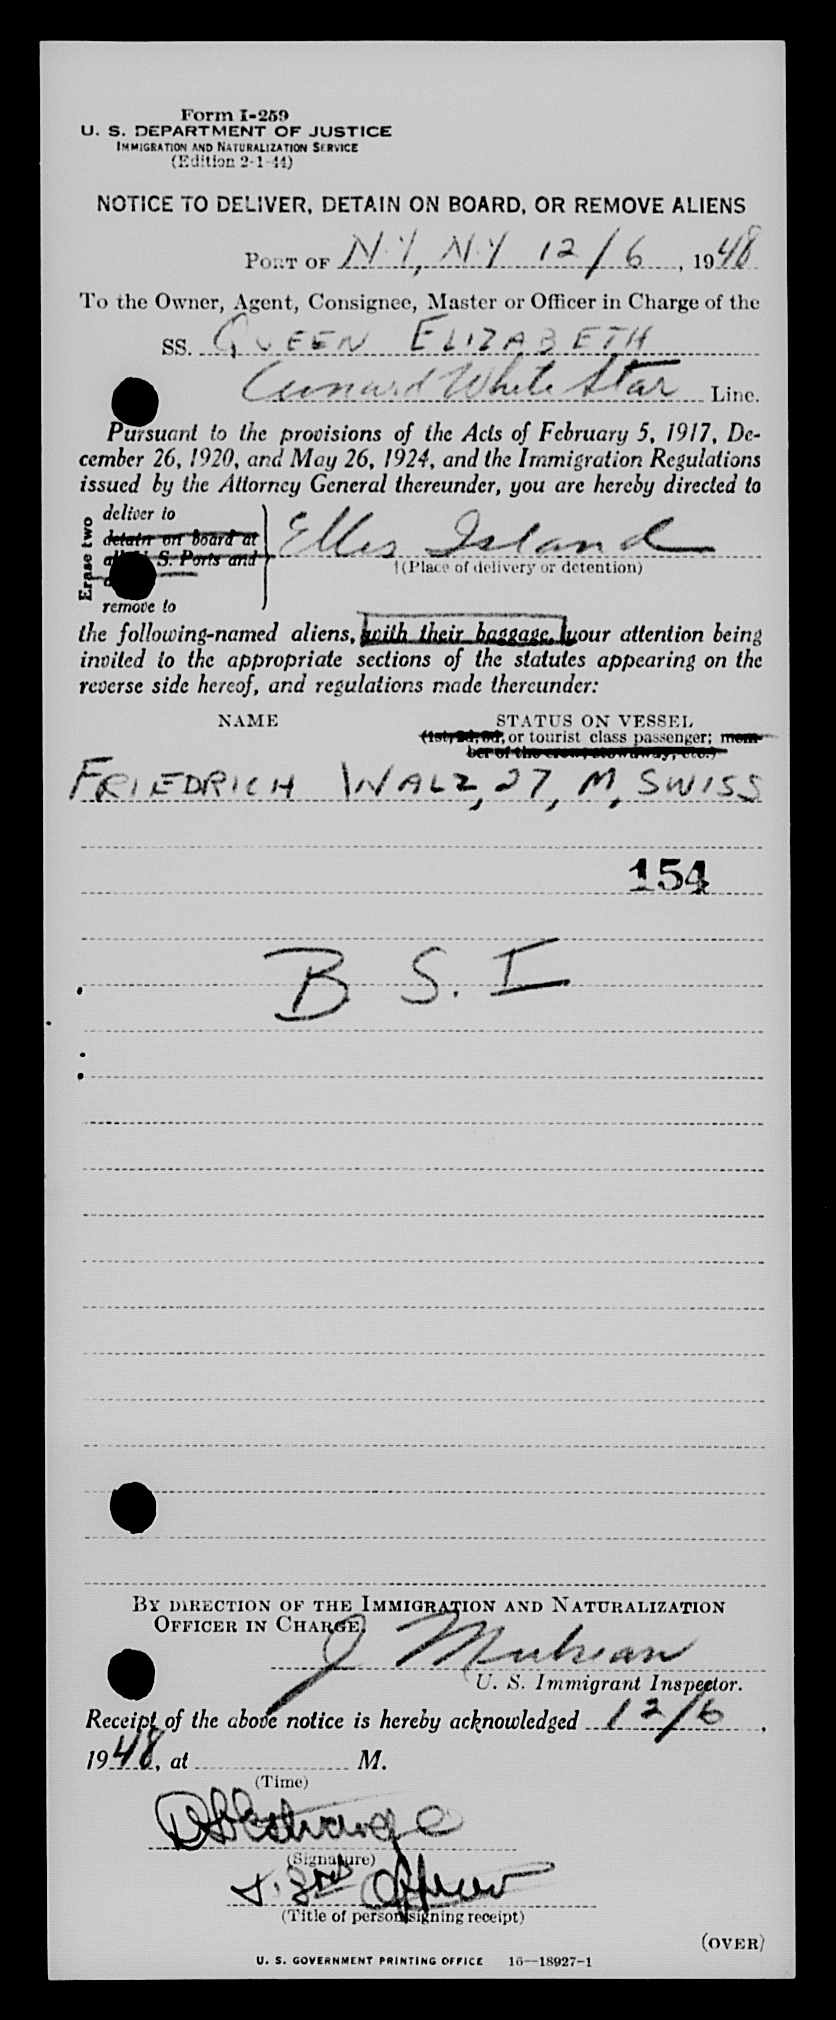 Form I-259
U. S. DEPARTMENT OF JUSTICE
IMMIGRATION AND NATURALIZATION SERVICE
(Edition 2-1-44)
NOTICE TO DELIVER, DETAIN ON BOARD, OR REMOVE ALIENS
PORT OF N.Y., N.Y 12/6, 1948
To the Owner, Agent, Consignee, Master or Officer in Charge of the
SS. QUEEN ELIZABETH
Cunard White Star Line.
Pursuant to the provisions of the Acts of February 5, 1917, De-
cember 26, 1920, and May 26, 1924, and the Immigration Regulations
issued by the Attorney General thereunder, you are hereby directed to
Erase two
deliver to
detain on board at
all U. S. Ports and
remove to
Ellis Island
(Place of delivery or detention)
the following-named aliens, with their baggage, your attention being
invited to the appropriate sections of the statutes appearing on the
reverse side hereof, and regulations made thereunder:
NAME STATUS ON VESSEL
(1st, 2d, 3d, or tourist class passenger; mem-
ber of the crew, stowaway, etc.)
FRIEDRICH WALZ, 27, M, SWISS
154
B S. I
BY DIRECTION OF THE IMMIGRATION AND NATURALIZATION
OFFICER IN CHARGE.
J
U. S. Immigrant Inspector.
Receipt of the above notice is hereby acknowledged 12/6,
1948, at M.
(Time)
(Signature)
J. 3rd Officer
(Title of person signing receipt)
(OVER)
U. S. GOVERNMENT PRINTING OFFICE 16—18927-1